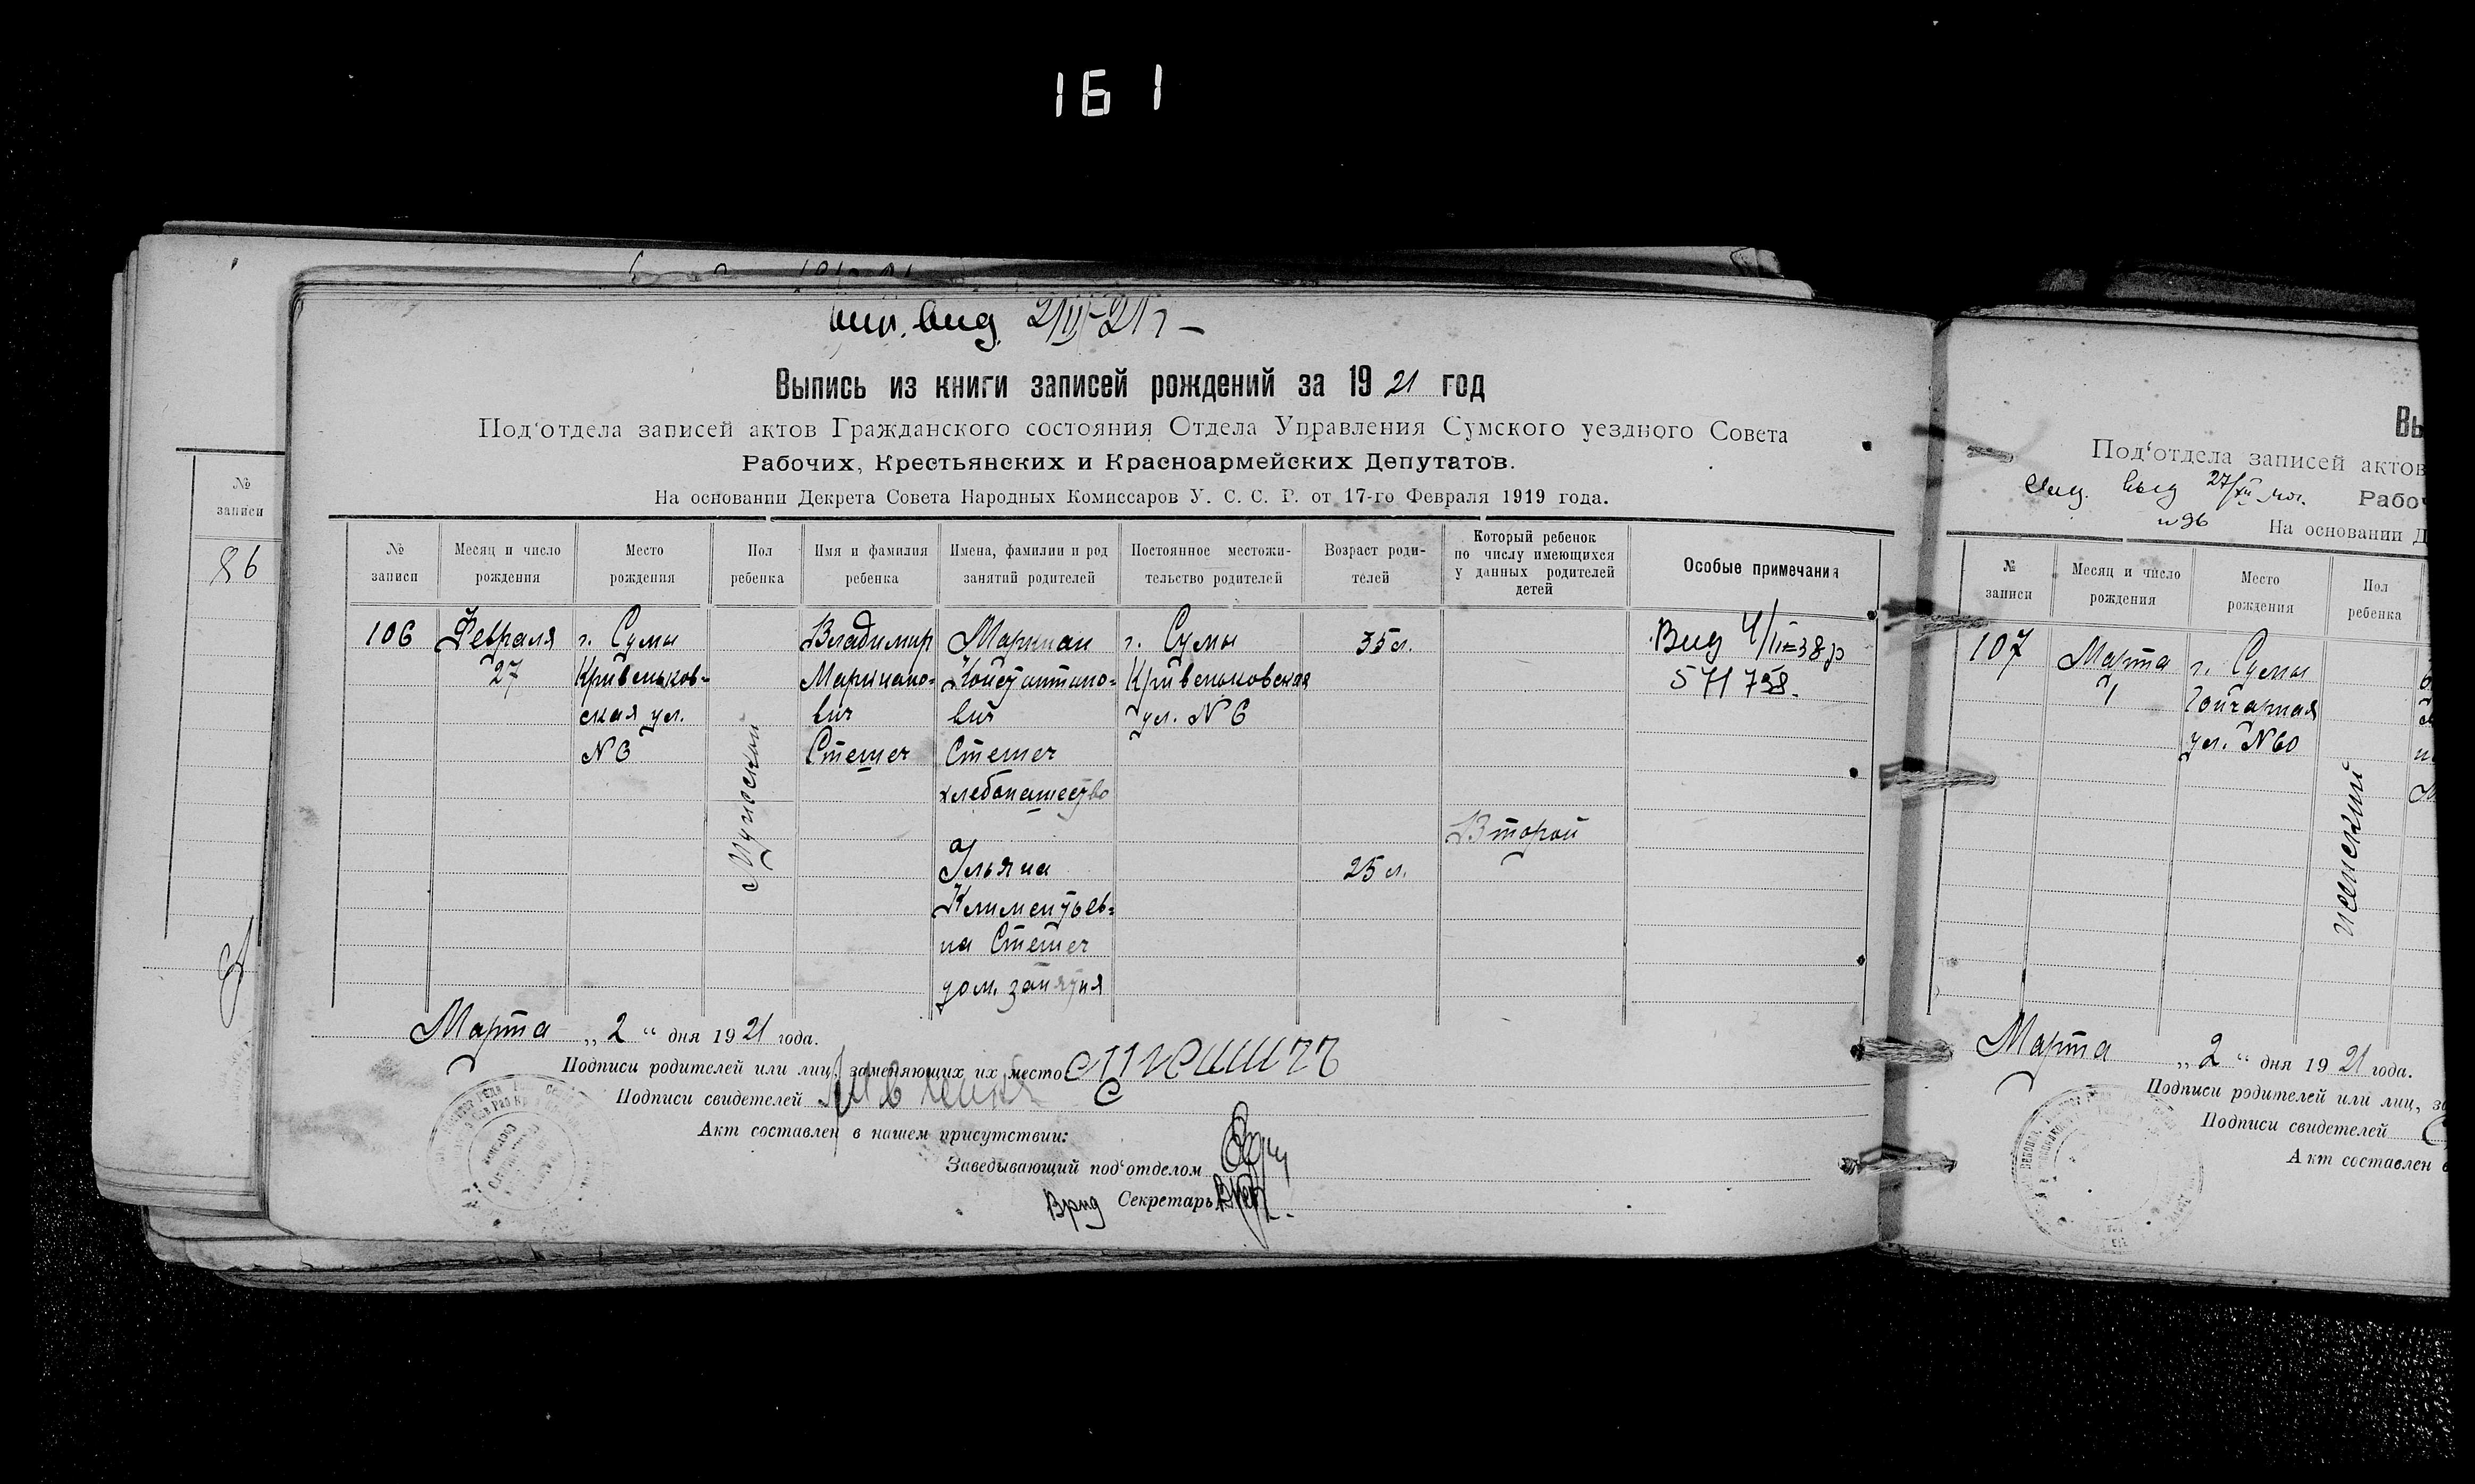 161
вып. выд. 2/III-21 г
Выпись из книги записей рождений за 1921 год
Под‘отдела записей актов Гражданского состояния Отдела Управления Сумского уездного Совета
Рабочих, Крестьянских и Красноармейских Депутатов.
На основании Декрета Совета Народных Комиссаров У. С. С. Р. от 17-го Февраля 1919 года.
№ записи
Месяц и число рождения
Место рождения
Пол ребенка
Имя и фамилия ребенка
Имена, фамилии и род занятий родителей
Постоянное местожи-
тельство родителей
Возраст роди-
телей
Который ребенок
по числу имеющихся
у данных родителей
детей
Особые примечания
106
Февраля
27
г. Сумы
Кривеньков-
ская ул.
N 6
Мужской
Владимир
Марипано-
вич
Стешич
Марипан
Константино-
вич
Стешич
хлебопашество
Ульяна
Климентьев-
на Стешич
дом. занятия
г. Сумы
Кривеньковская
ул. N 6
35 л.
25 л.
Второй
571798.
Марта „ 2 “ дня 1921 года.
Подписи родителей или лиц, заменяющих их место
Подписи свидетелей
Акт составлен в нашем присутствии:
Заведывающий под‘отделом
Врид Секретарь
№
записи
86
Вы
Под‘отдела записей актов
Рабоч
На основании Д
№ записи
Месяц и число рождения
Место рождения
Пол ребенка
107
Марта
1
г. Сумы
Гончарная
ул. N 60
женский
Марта „ 2 “ дня 1921 года.
Подписи родителей или лиц, за
Подписи свидетелей
Акт составлен в